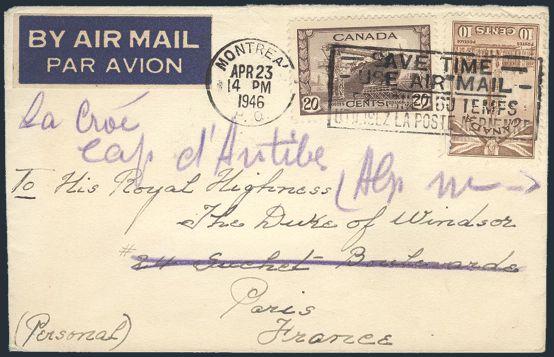 BY AIR MAIL
PAR AVION
MONTREAL
APR 23
14 PM
1946
P.Q.
CANADA
20 CENTS 20
POSTES POSTAGE
10 10
CANADA
SAVE TIME
USE AIR MAIL
DU TEMPS
UTILISEZ LA POSTE AÉRIENNE
La Croé
Cap d'Antibe
(Alp m
To His Royal Highness
The Duke of Windsor
#24 Suchet Boulevarde
Paris
France
(Personal)